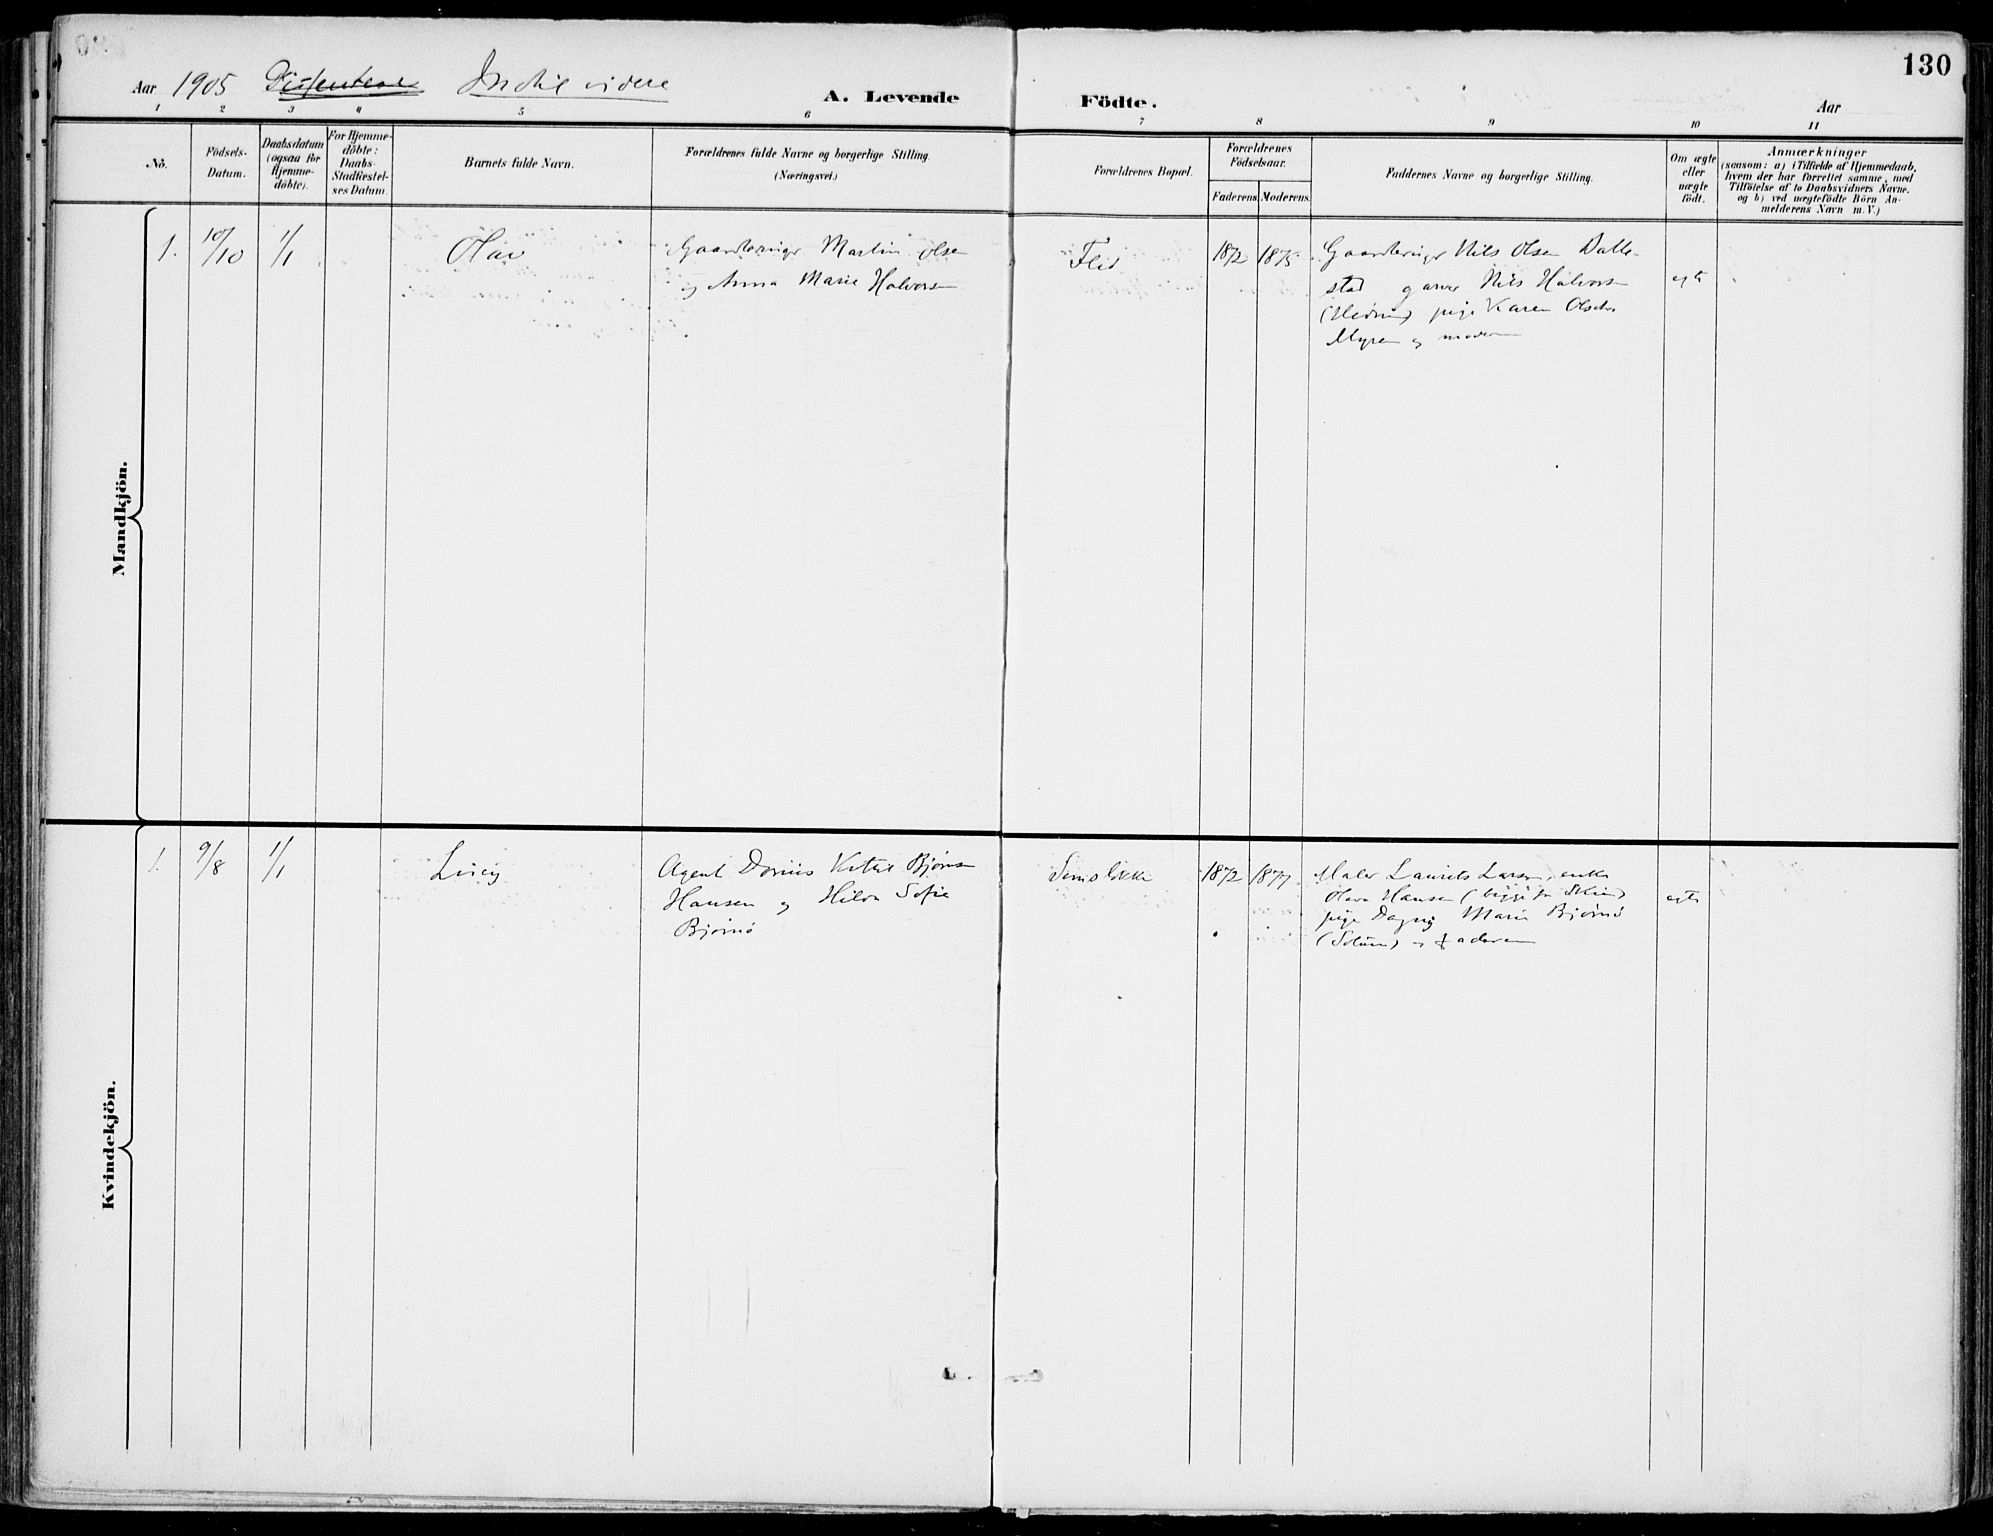 130
Aar 1905 Dissentere Indtil videre
A. Levende Födte.
Aar
1 2 3 4 5 6 7 8 9 10 11
No.
Födsels-
Datum.
Daabsdatum
(ogsaa for
Hjemme-
döbte).
For Hjemme-
döbte:
Daabs-
Stadfæstel-
ses Datum.
Barnets fulde Navn.
Forældrenes fulde Navne og borgerlige Stilling
(Næringsvei.)
Forældrenes Bopæl.
Forældrenes
Födselsaar.
Faderens. Moderens.
Faddernes Navne og borgerlige Stilling.
Om ægte
eller
uægte
födt.
Anmærkninger
(saasom: a) i Tilfælde af Hjemmedaab,
hvem der har forrettet samme, med
Tilföielse af to Daabsvidners Navne.
og b) ved uægtefödte Börn An-
melderens Navn m. V.)
Mandkjön.
1. 10/10 1/1 Olav
Gaardbruger Martin Olsen
og Anna Marie Halvorsen
Flid
1872 1875
Gaardbruger Nils Olsen Valle-
stad garver Nils Halvorsen
pige Karen Olsdtr
Myren og moderen
egte
Kvindekjön.
1. 9/8 1/1 Lucy
Agent Dorius Ketil Bjørnsen
Hansen og Hilda Sofie
Bjørnø
1872 1877
Maler Laurits Larsen, enke
Olava Hansen (begge fra Skien)
pige Dagny Marie Bjørnø
(Solum) og faderen
egte